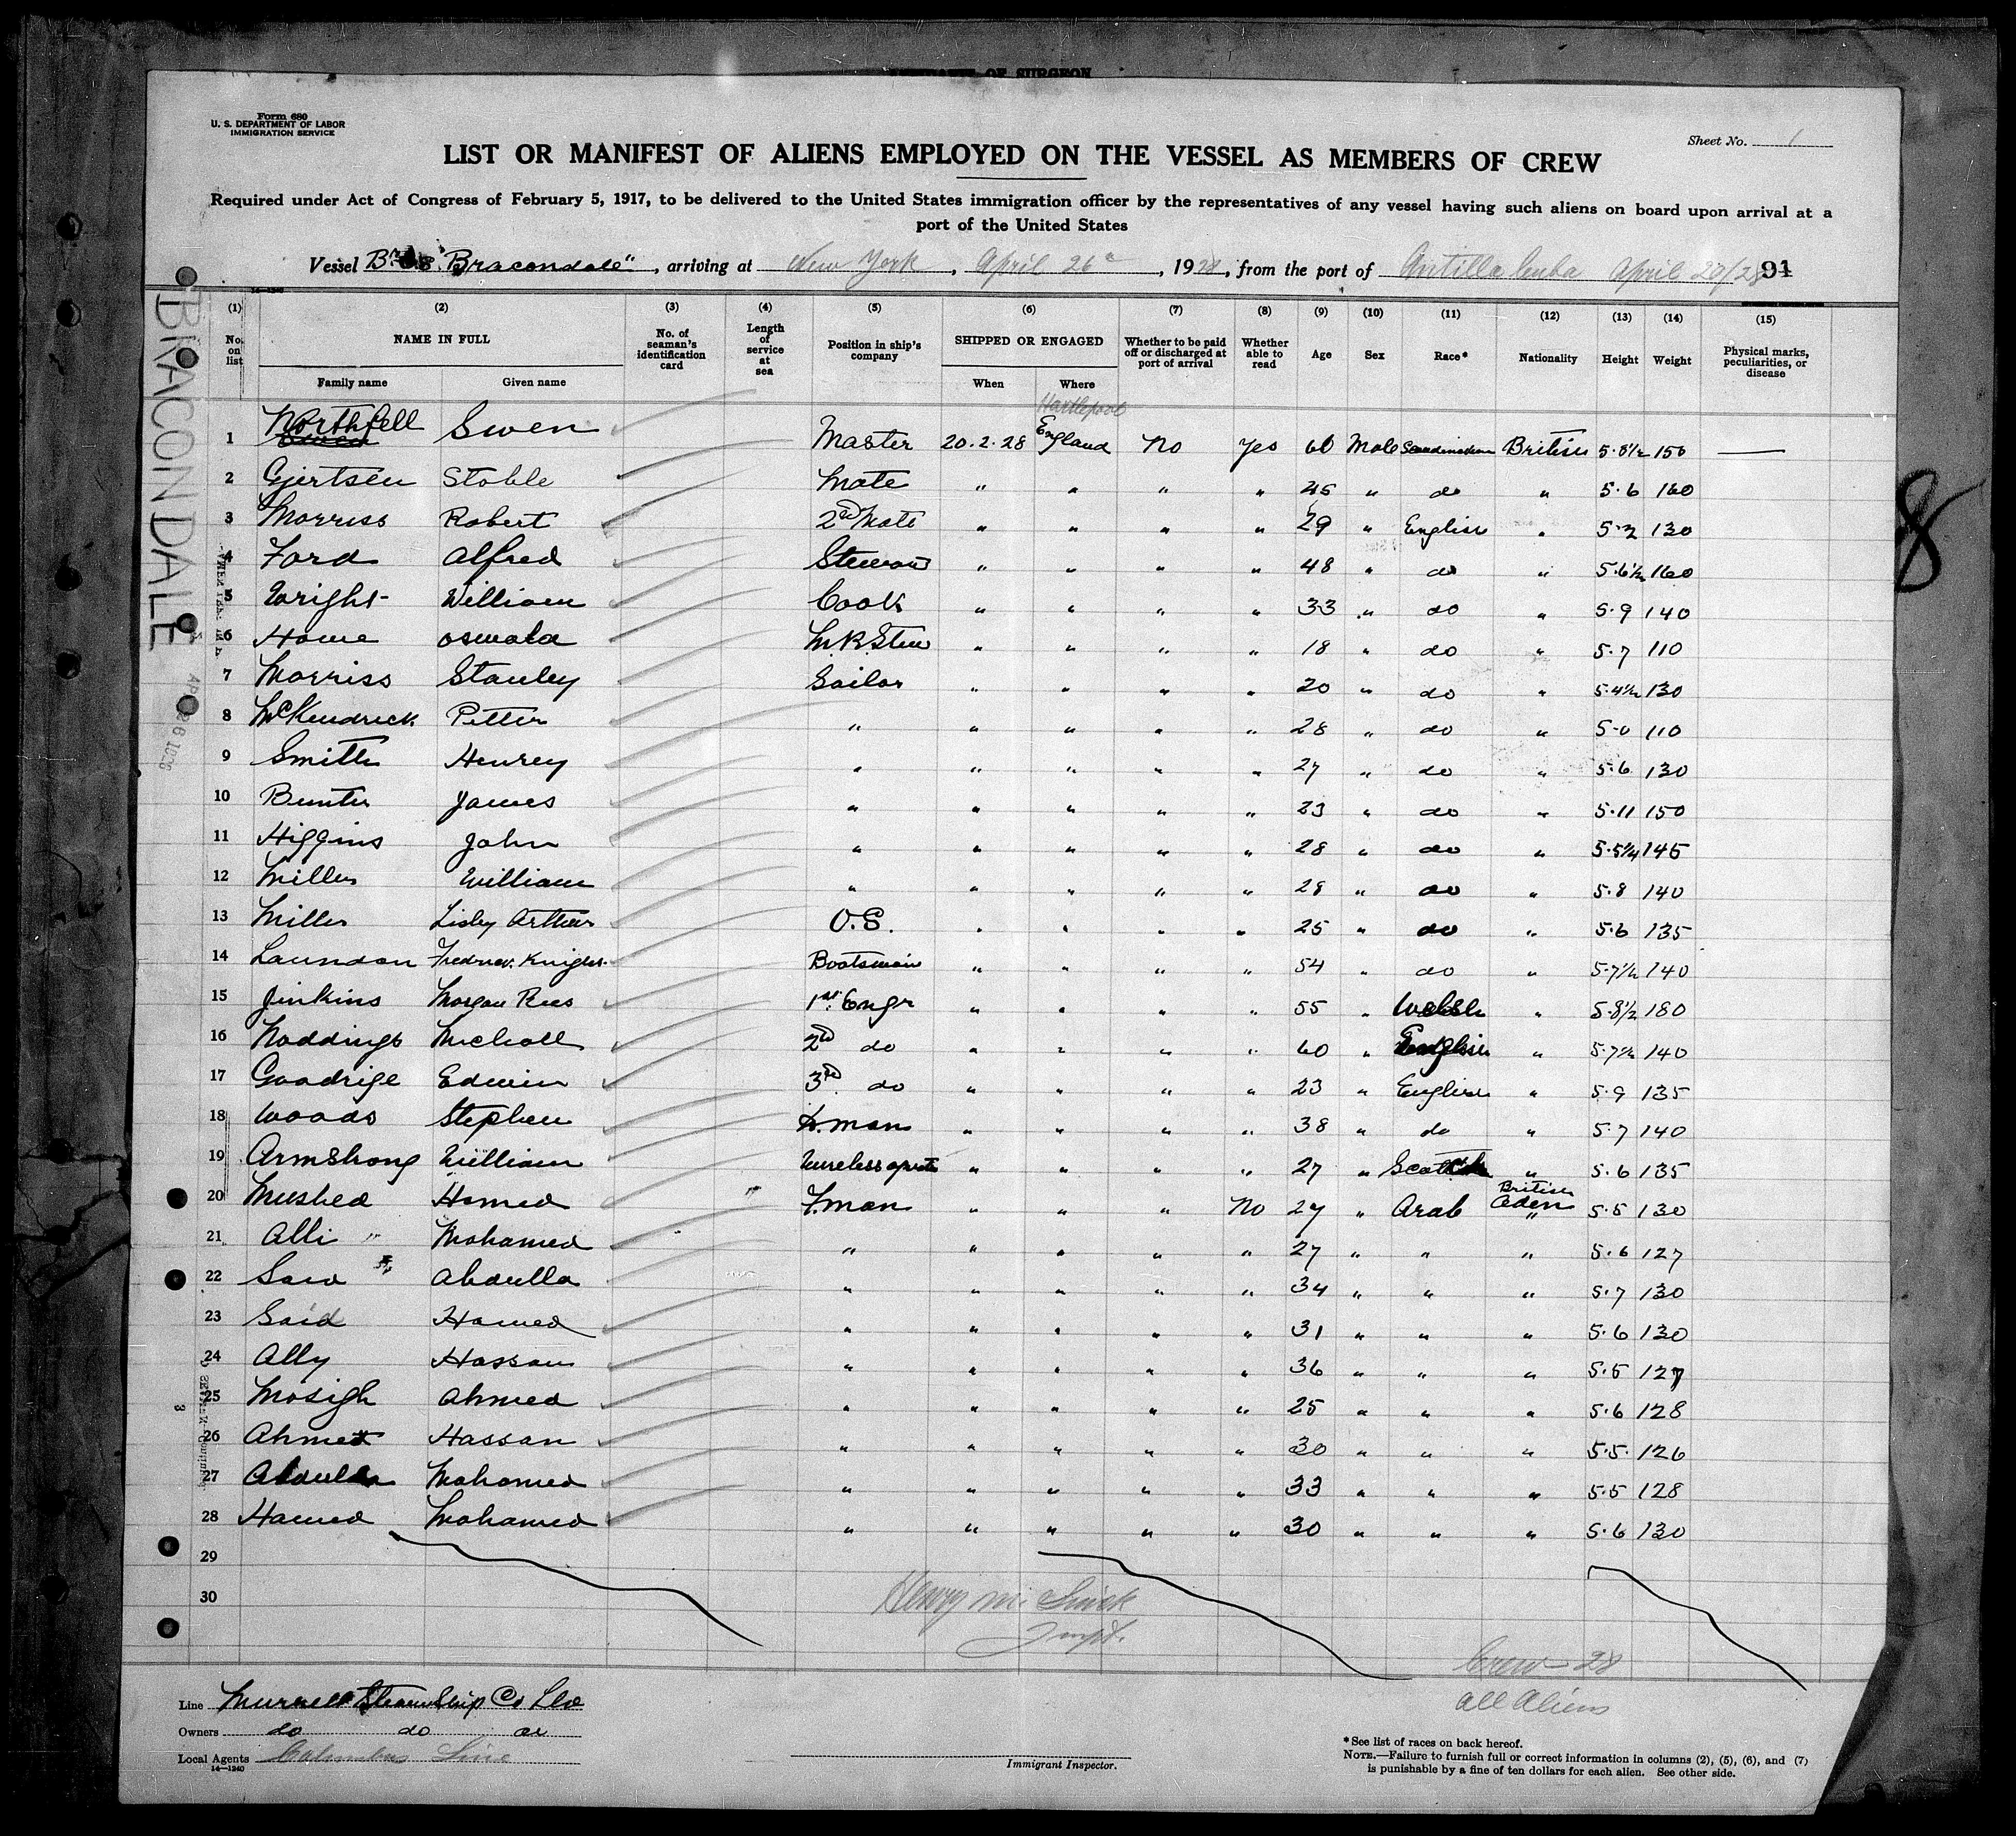 OF SURGEON
Form 680
U. S. DEPARTMENT OF LABOR
IMMIGRATION SERVICE
Sheet No. 1
LIST OR MANIFEST OF ALIENS EMPLOYED ON THE VESSEL AS MEMBERS OF CREW
Required under Act of Congress of February 5, 1917, to be delivered to the United States immigration officer by the representatives of any vessel having such aliens on board upon arrival at a
port of the United States
Vessel "Bracondale", arriving at New York, April 26, 1928, from the port of Antilla Cuba April 20/28 91
14-1240
BRACONDALE
8
(1) (2) (3) (4) (5) (6) (7) (8) (9) (10) (11) (12) (13) (14) (15)
No. on list NAME IN FULL Family name Given name No. of seaman's identification card Length of service at sea Position in ship's company SHIPPED OR ENGAGED When Where Whether to be paid off or discharged at port of arrival Whether able to read Age Sex Race* Nationality Height Weight Physical marks, peculiarities, or disease
Hartlepool
1 Northfell Swen Master 20.2.28 England No Yes 60 Male Scandinavian British 5.8½ 150 —
2 Gjertsen Stoble Mate " " " " 45 " do " 5.6 160
3 Morriss Robert 2nd Mate " " " " 29 " English " 5.2 130
4 Ford Alfred Steward " " " " 48 " do " 5.6½ 160
5 Wright William Cook " " " " 33 " do " 5.9 140
6 Howe Oswald M.R. Stew " " " " 18 " do " 5.7 110
7 Morriss Stanley Sailor " " " " 20 " do " 5.4½ 130
8 McKendrick Petter " " " " " 28 " do " 5.0 110
9 Smith Henrey " " " " " 27 " do " 5.6 130
10 Bunter James " " " " " 23 " do " 5.11 150
11 Higgins John " " " " " 28 " do " 5.5¼ 145
12 Miller William " " " " " 28 " do " 5.8 140
13 Miller Lisby Arthur O.S. " " " " 25 " do " 5.6 135
14 Laundon Knight Boatswain " " " " 54 " do " 5.7½ 140
15 Jinkins Morgan Rees 1st Engr " " " " 55 " Welsh " 5.8½ 180
16 Noddings Micholl 2nd do " " " " 60 " English " 5.7½ 140
17 Goodrige Edwin 3rd do " " " " 23 " English " 5.9 135
18 Woods Stephen D.man " " " " 38 " do " 5.7 140
19 Armstrong William Wireless " " " " 27 " Scottch " 5.6 135
20 Mushed Hamed F.man " " " No 27 " Arab British Aden " 5.5 130
21 Alli " Mohamed " " " " " 27 " " " 5.6 127
22 Said Abdulla " " " " " 34 " " " 5.7 130
23 Said Hamed " " " " " 31 " " " 5.6 130
24 Ally Hassan " " " " " 36 " " " 5.5 127
25 Mosigh Ahmed " " " " " 25 " " " 5.6 128
26 Ahmed Hassan " " " " " 30 " " " 5.5 126
27 Abdulla Mohamed " " " " " 33 " " " 5.5 128
28 Hamed Mohamed " " " " " 30 " " " 5.6 130
29
30
Henry M.
Crew 28
all Aliens
Line Murrell Steam Ship Co Ltd
Owners do do do
Local Agents Columbus Line
14—1240
Immigrant Inspector.
*See list of races on back hereof.
NOTE.—Failure to furnish full or correct information in columns (2), (5), (6), and (7)
is punishable by a fine of ten dollars for each alien. See other side.